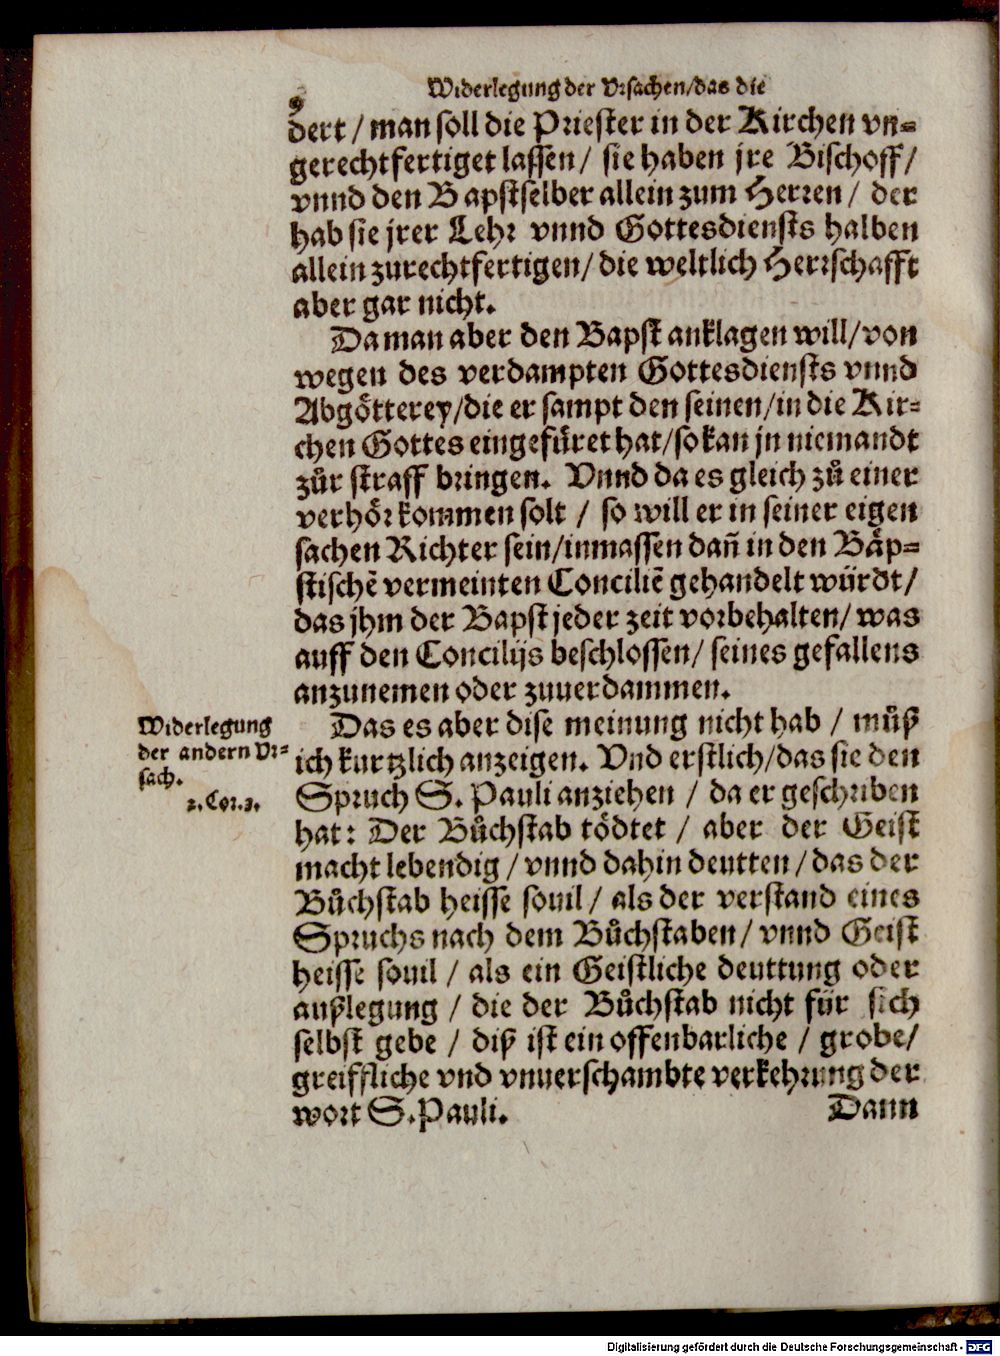 Widerlegung der Vrsachen/das die
dert / man soll die Priester in der Kirchen vn=
gerechtfertiget lassen / sie haben jre Bischoff /
vnnd den Bapst selber allein zum Herren / der
hab sie jrer Lehr vnnd Gottesdiensts halben
allein zurechtfertigen / die weltlich Herrschafft
aber gar nicht.
Da man aber den Bapst anklagen will/von
wegen des verdampten Gottesdiensts vnnd
Abgötterey/die er sampt den seinen/in die Kir=
chen Gottes eingefüret hat/so kan jn niemandt
zůr straff bringen. Vnnd da es gleich zů einer
verhör kommen solt / so will er in seiner eigen
sachen Richter sein/inmassen dañ in den Bäp=
stischē vermeinten Conciliē gehandelt würdt/
das jhm der Bapst jeder zeit vorbehalten/ was
auff den Concilijs beschlossen/ seines gefallens
anzunemen oder zuuerdammen.
Widerlegung
der andern Vr=
sach.
2. Cor. 3.
Das es aber dise meinung nicht hab / můß
ich kurtzlich anzeigen. Vnd erstlich/das sie den
Spruch S. Pauli anziehen / da er geschriben
hat: Der Bůchstab tödtet / aber der Geist
macht lebendig / vnnd dahin deutten / das der
Bůchstab heisse souil / als der verstand eines
Spruchs nach dem Bůchstaben/ vnnd Geist
heisse souil / als ein Geistliche deuttung oder
außlegung / die der Bůchstab nicht für sich
selbst gebe / diß ist ein offenbarliche / grobe/
greiffliche vnd vnuerschambte verkehrung der
wort S. Pauli.
Dann
Digitalisierung gefördert durch die Deutsche Forschungsgemeinschaft - DFG